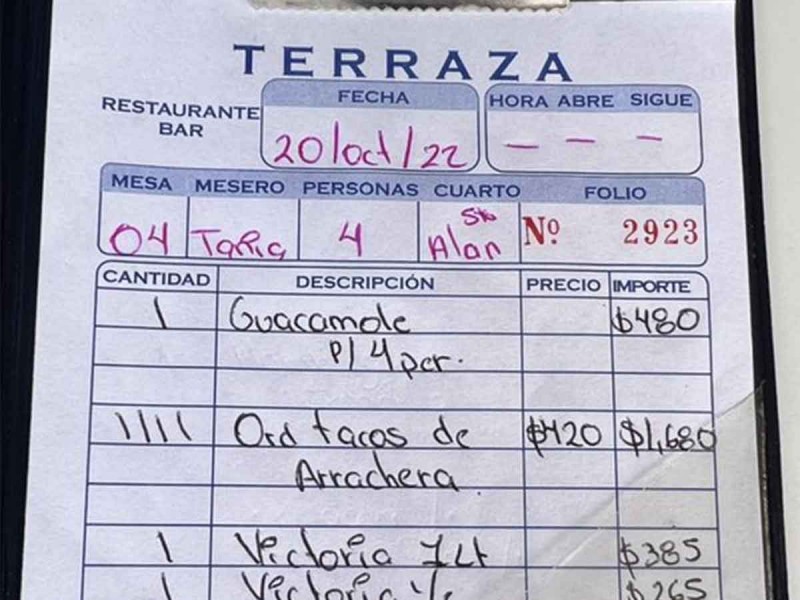 TERRAZA
RESTAURANTE
BAR
FECHA
20/oct/22
HORA ABRE SIGUE
— — —
MESA MESERO PERSONAS CUARTO FOLIO
04 Tania 4 Sr. Alan Nº 2923
CANTIDAD DESCRIPCIÓN PRECIO IMPORTE
1 Guacamole $480
P/ 4 per.
1111 Ord tacos de $420 $1,680
Arrachera.
1 Victoria 1Lt $385
1 Victoria $265